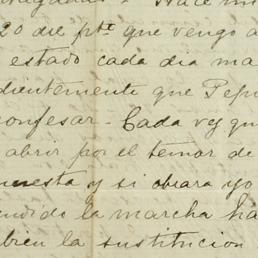 20 del pte que vengo a
estado cada dia ma
dientemente que Pepi
confesar - Cada vez qu
abrir por el temor de
uesta y si obrara yo
endido la marcha ha
bien la sustitucion